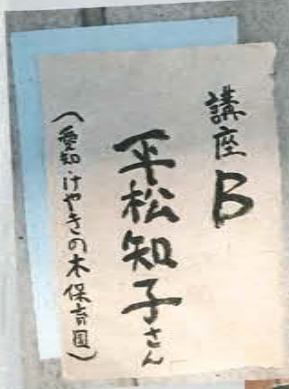 講座B
平松知子さん
(愛知・けやきの木保育園)